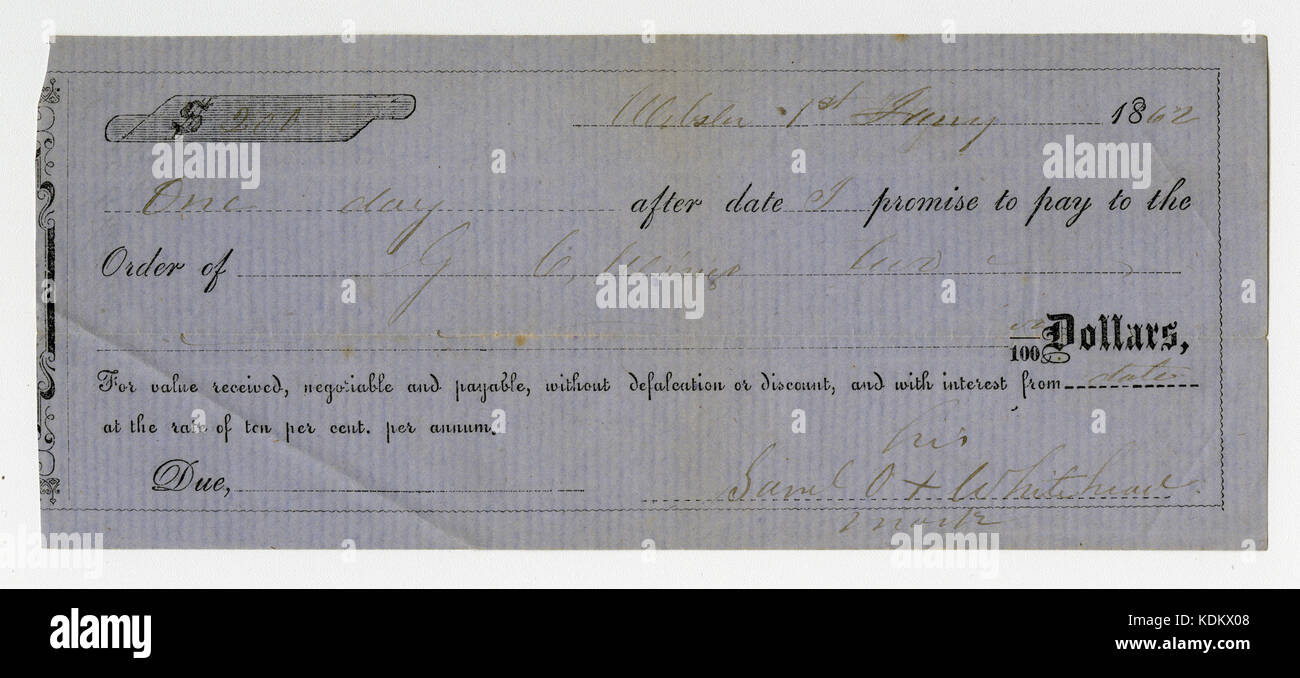 $ 2.00
Webster 1st 1862
One day after date I promise to pay to the
Order of G C, two
100 Dollars,
For value received, negotiable and payable, without defalcation or discount, and with interest from date
at the rate of ten per cent. per annum.
his
Due, Saml O + Whitehead
mark
alamy
Image ID: KDKX08
www.alamy.com